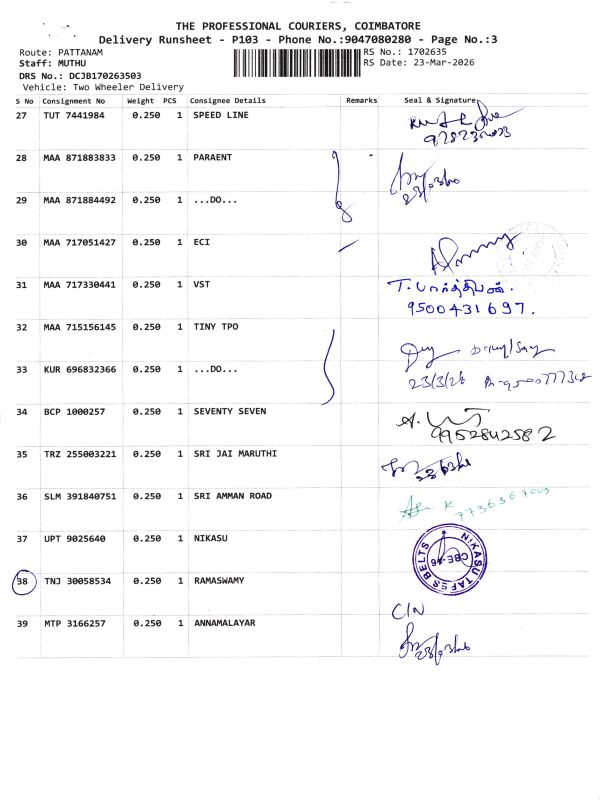 THE PROFESSIONAL COURIERS, COIMBATORE
Delivery Runsheet - P103 - Phone No.:9047080280 - Page No.:3
Route: PATTANAM RS No.: 1702635
Staff: MUTHU RS Date: 23-Mar-2026
DRS No.: DCJB170263503
Vehicle: Two Wheeler Delivery
S No Consignment No Weight PCS Consignee Details Remarks Seal & Signature
27 TUT 7441984 0.250 1 SPEED LINE
28 MAA 871883833 0.250 1 PARAENT
29 MAA 871884492 0.250 1 ...DO...
30 MAA 717051427 0.250 1 ECI
31 MAA 717330441 0.250 1 VST
T. பார்த்திபன்.
9500431697.
32 MAA 715156145 0.250 1 TINY TPO
33 KUR 696832366 0.250 1 ...DO...
23/3/26
34 BCP 1000257 0.250 1 SEVENTY SEVEN
9952842582
35 TRZ 255003221 0.250 1 SRI JAI MARUTHI
36 SLM 391840751 0.250 1 SRI AMMAN ROAD
7736367009
37 UPT 9025640 0.250 1 NIKASU
NIKASU TAPES BELTS
CBE-16
38 TNJ 30058534 0.250 1 RAMASWAMY
C/N
39 MTP 3166257 0.250 1 ANNAMALAYAR